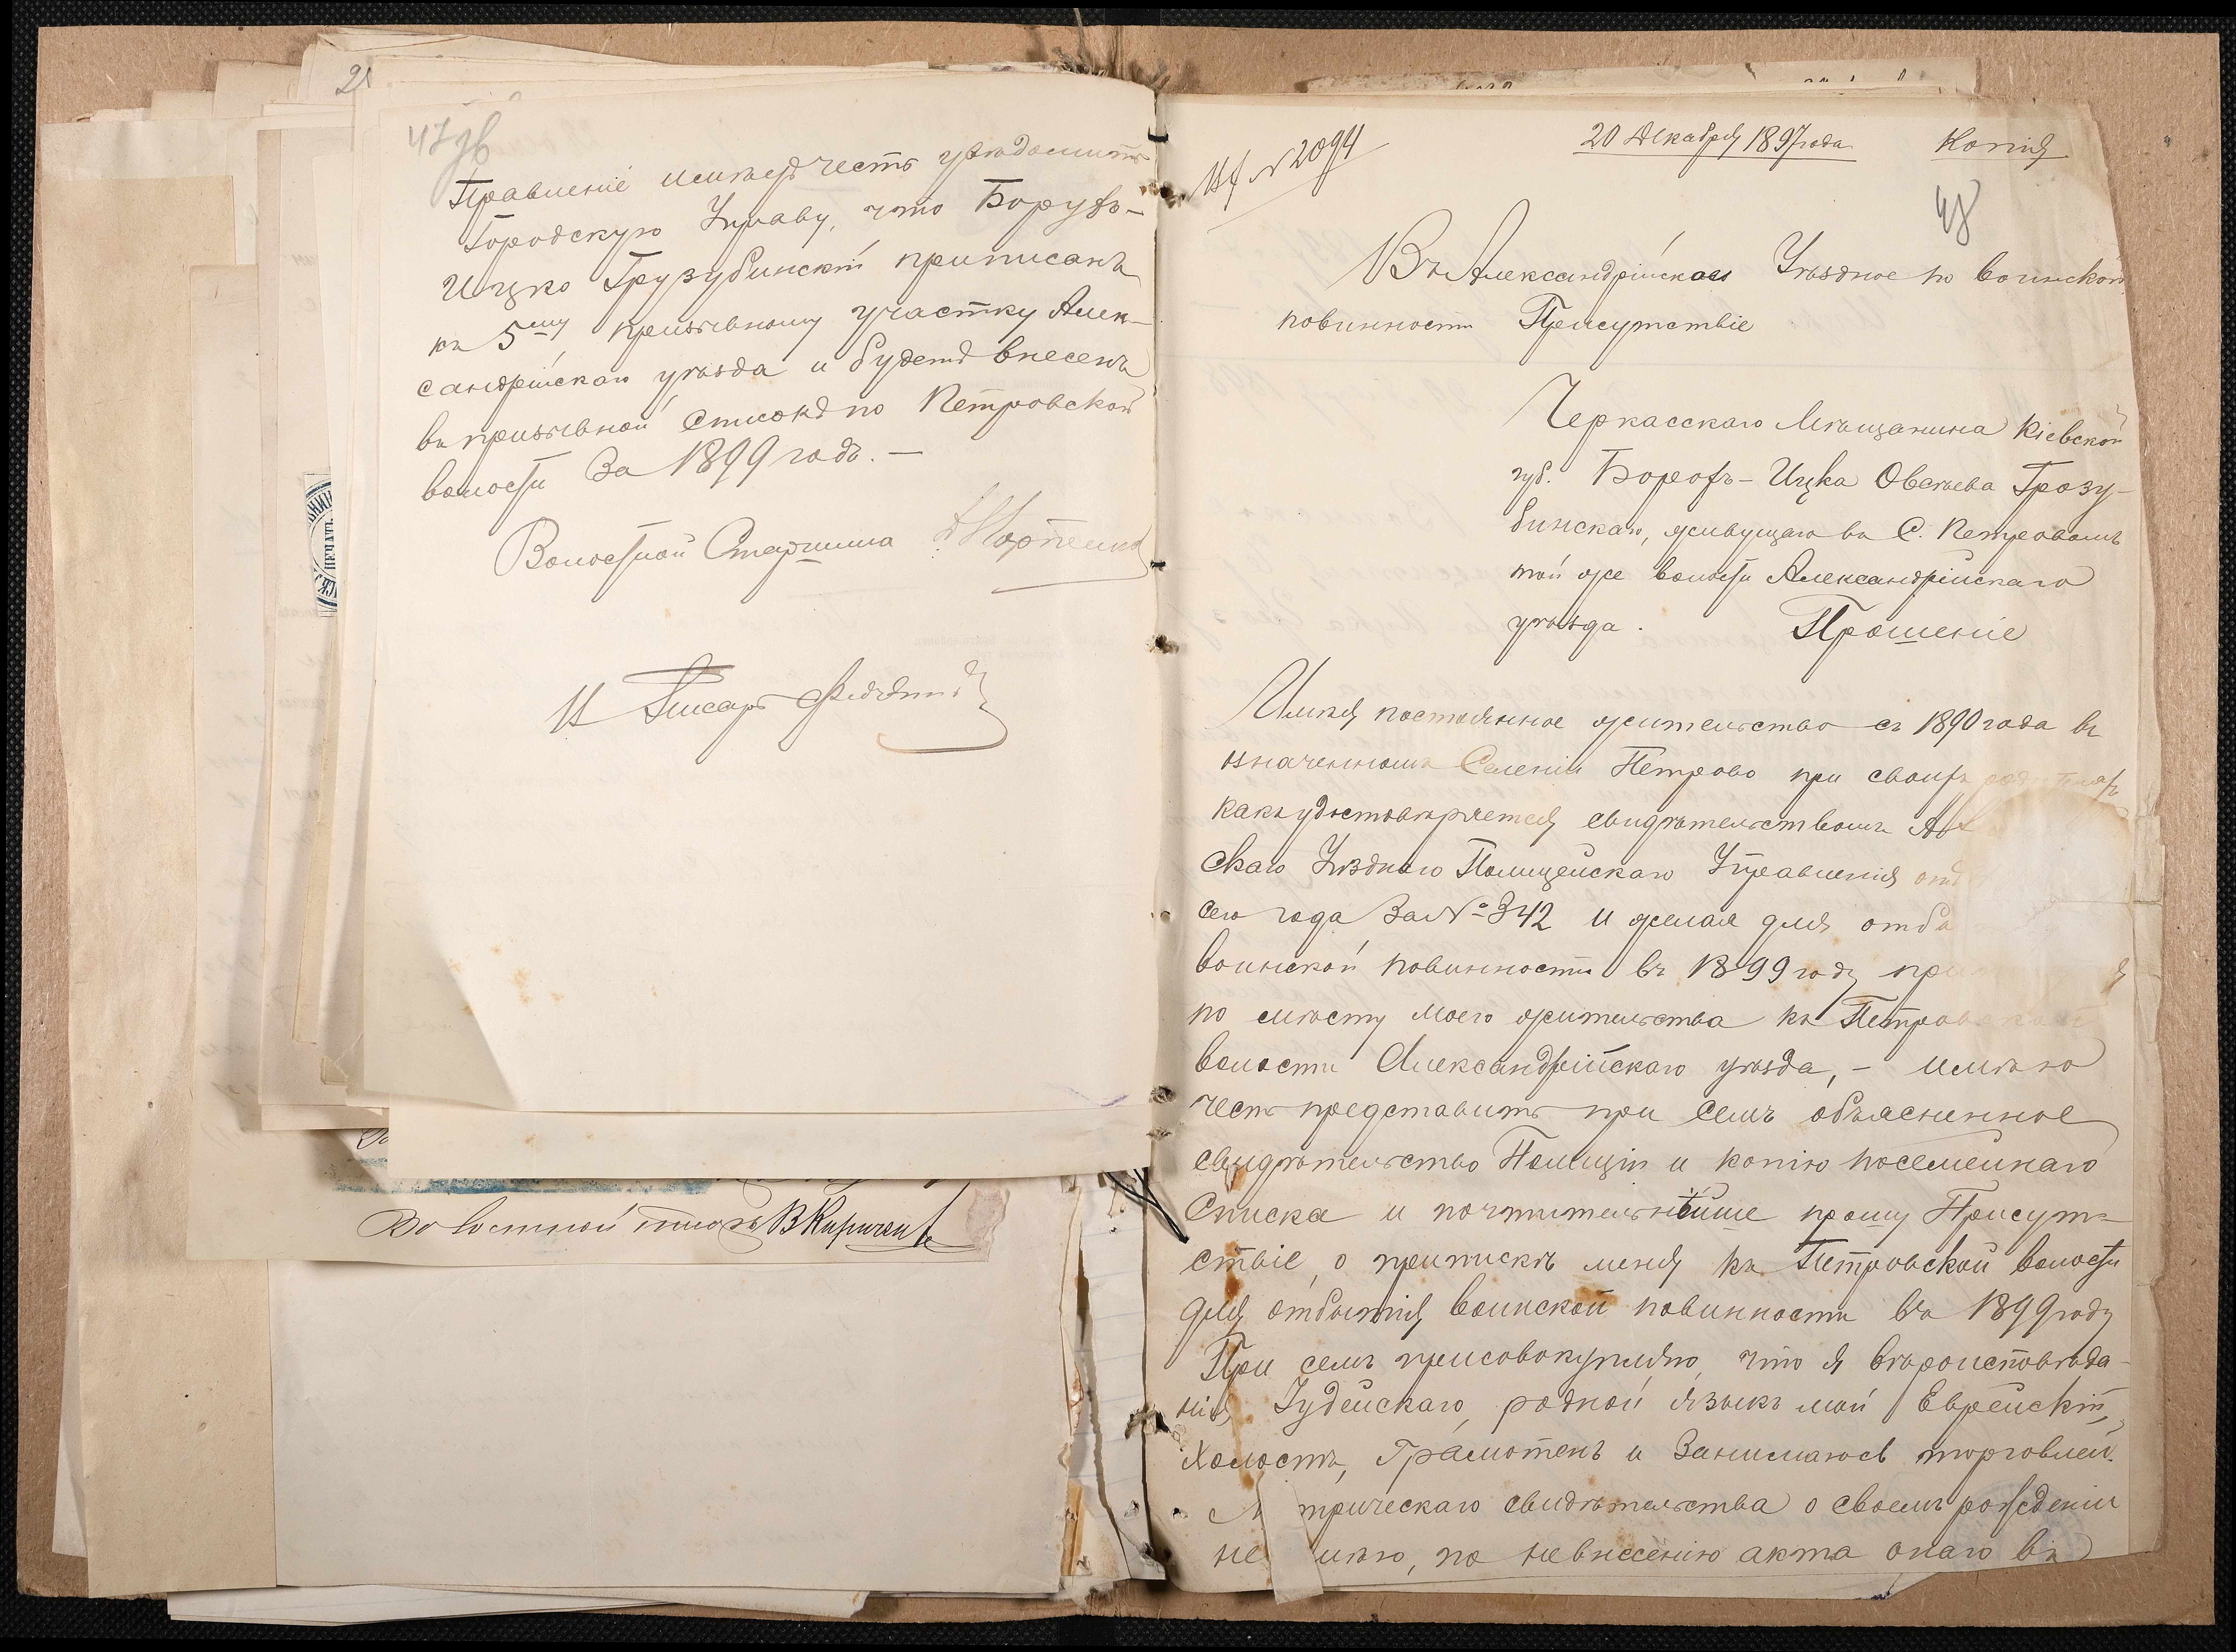 47 зв
Правленіе имѣетъ честь увѣдомить
Городскую Управу, что Борухъ-
Ицко Грузубинскій приписанъ
къ 5му призывному участку Алек-
сандрійскаго уѣзда и будетъ внесенъ
въ призывной списокъ по Петровской
волости за 1899 годъ. —
Волостной Старшина
И Писарь
Волостной писарь В Кириченко
20 Декабря 1897 года Копія
№ 2094
48
Въ Александрійское Уѣздное по воинской
повинности Присутствіе
Черкасскаго Мѣщанина Кіевской
губ. Борохъ-Ицка Овсѣева Грозу-
бинскаго, живущаго въ С. Петровомъ
той же волости Александрійскаго
уѣзда. Прошеніе
Имѣя постоянное жительство съ 1890 года въ
означенномъ Селеніи Петрово при своихъ родителяхъ
какъ удостовѣряется свидѣтельствомъ
скаго Уѣзднаго Полицейскаго Управленія отъ
сего года за № 342 и желая для отбы
воинской повинности въ 1899 году при я
по мѣсту моего жительства къ Петровской
волости Александрійскаго уѣзда, - имѣю
честь представить при семъ объясненное
свидѣтельство Полиціи и копію посемейнаго
Списка и почтительнѣйше прошу Присут-
ствіе, о припискѣ меня къ Петровской волости
для отбытія воинской повинности въ 1899 году
При семъ присовокупляю, что я вѣроисповѣда-
нія Іудейскаго, родной языкъ мой Еврейскій,
Холостъ, Грамотенъ и Занимаюсь торговлей.
М трическаго свидѣтельства о своемъ рожденіи
не имѣю, по невнесенію акта онаго въ